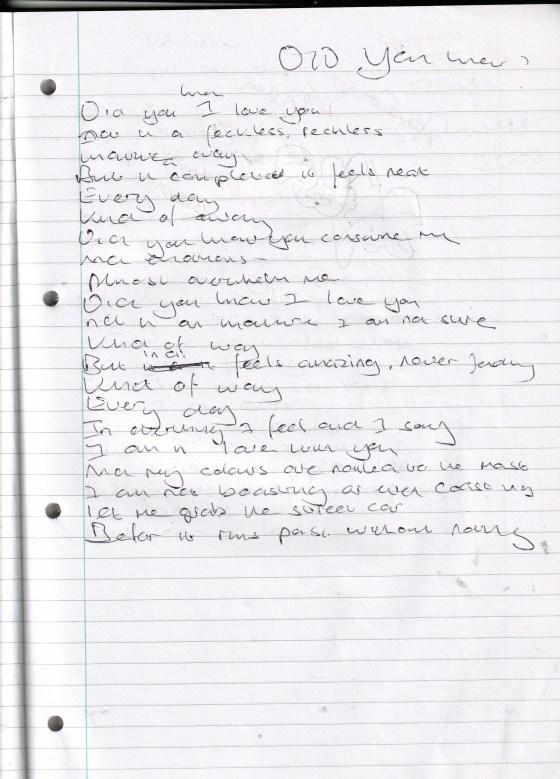 DID You know?
know
Did you I love you
not in a feckless, reckless
way
But completed it feels neat
Every day
Kind of away
Did you know you consume me
Almost overwhelm me
Did you know I love you
not in an I am not sure
Kind of way
But in a feels amazing, never
Kind of way
Every day
In I feel and I say
I am in love with you
my colours are to the mast
I am not boasting or even coasting
let me grab the street car
Before it runs past without